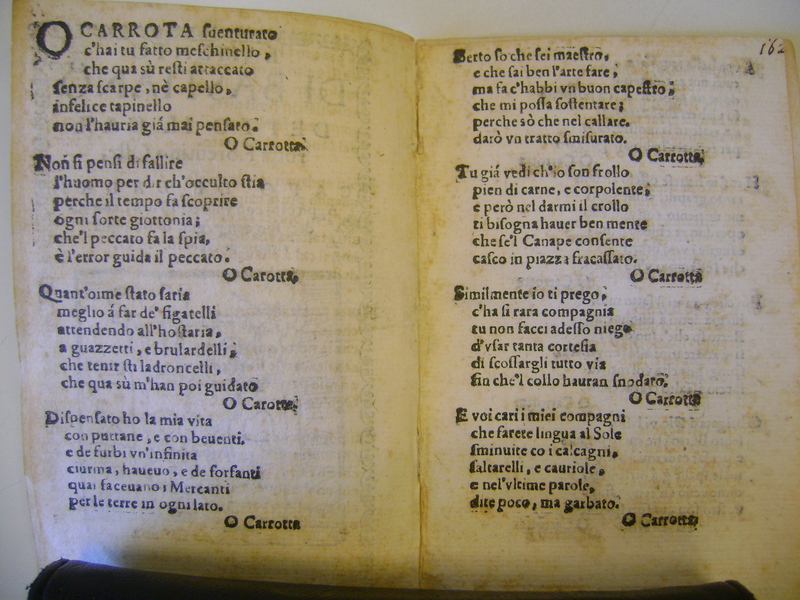 O CARROTA suenturato
c'hai tu fatto meschinello,
che qua sù resti attaccato
senza scarpe, nè capello,
infelice tapinello
non l'hauria giá mai pensato.
O Carrotta.
Non si pensi di fallire
l'huomo per dir ch'occulto stia
perche il tempo fa scoprire
ogni sorte giottonia;
che'l peccato fa la spia,
è l'error guida il peccato.
O Carotta,
Quant'oime stato saria
meglio á far de' figatelli
attendendo all'hostaria,
a guazzetti, e brulardelli;
che tenir sti ladroncelli,
che qua sù m'han poi guidato
O Carotta;
Dispensato ho la mia vita
con puttane, e con beuenti,
e de furbi vn'infinita
ciurma, haueuo, e de forfanti
quai faceuano i Mercanti
per le terre in ogni lato.
O Carrotta
162
Berto so che sei maestro,
e che sai ben l'arte fare;
ma fa c'habbi vn buon capestro;
che mi possa sostentare;
perche sò che nel callare.
darò vn tratto smisurato.
O Carrotta,
Tu giá vedi ch'io son frollo
pien di carne, e corpolente;
e però nel darmi il crollo
ti bisogna hauer ben mente
che se'l Canape consente
casco in piazza fracassato.
O Carrotta
Similmente io ti prego,
c'ha si rara compagnia
tu non facci adesso niego
d'vsar tanta cortesia
di scossargli tutto via
fin che'l collo hauran snodato.
O Carrotta
E voi cari i miei compagni
che farete lingua al Sole
sminuite co i calcagni,
saltarelli, e cauriole,
e nel'vltime parole,
dite poco, ma garbato.
O Carrotta,